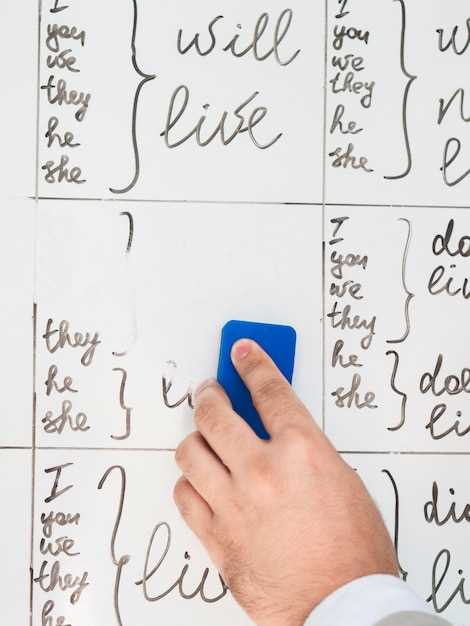 I
you
we
they
he
she
will
live
I
you
we
they
he
she
they
he
she
I
you
we
they
he
she
do
liv
I
you
we
they
he
liv